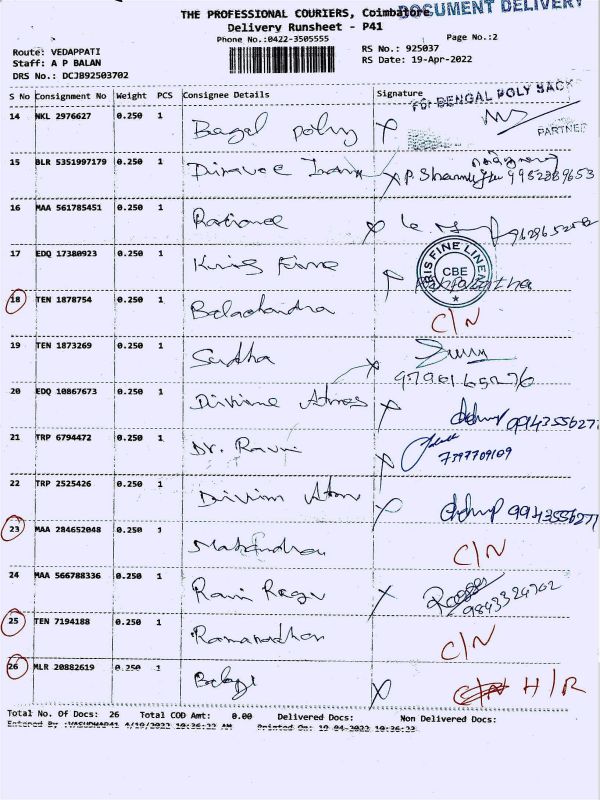 THE PROFESSIONAL COURIERS, Coimbatore
DOCUMENT DELIVERY
Delivery Runsheet - P41
Phone No.:0422-3505555
Page No.:2
Route: VEDAPPATI
RS No.: 925037
Staff: A P BALAN
RS Date: 19-Apr-2022
DRS No.: DCJB92503702
S No Consignment No Weight PCS Consignee Details Signature
FOR BENGAL POLY SACK
14 NKL 2976627 0.250 1
PARTNER
15 BLR 5351997179 0.250 1 P. 9952889653
16 MAA 561785451 0.250 1
17 EDQ 17380923 0.250 1 King
IRIS FINE LINEN
CBE
18 TEN 1878754 0.250 1 Balachandra C/N
19 TEN 1873269 0.250 1 Sudha
9796165276
20 EDQ 10867673 0.250 1
21 TRP 6794472 0.250 1 Dr. Ravi 7397709109
22 TRP 2525426 0.250 1 9943556277
23 MAA 284652048 0.250 1 Mahendran C/N
24 MAA 566788336 0.250 1 Ravi Ragu
25 TEN 7194188 0.250 1 Ramanadhan C/N
26 MLR 20882619 0.250 1 Balaji H/R
Total No. Of Docs: 26 Total COD Amt: 0.00 Delivered Docs: Non Delivered Docs:
Entered By :VASUDHAP41 4/19/2022 10:36:22 AM Printed On: 19-04-2022 10:36:23